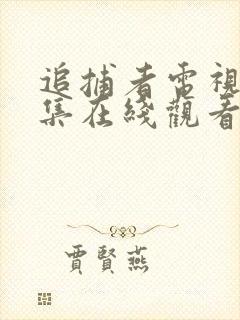 追捕者電視
集在綫觀看
賈賢燕